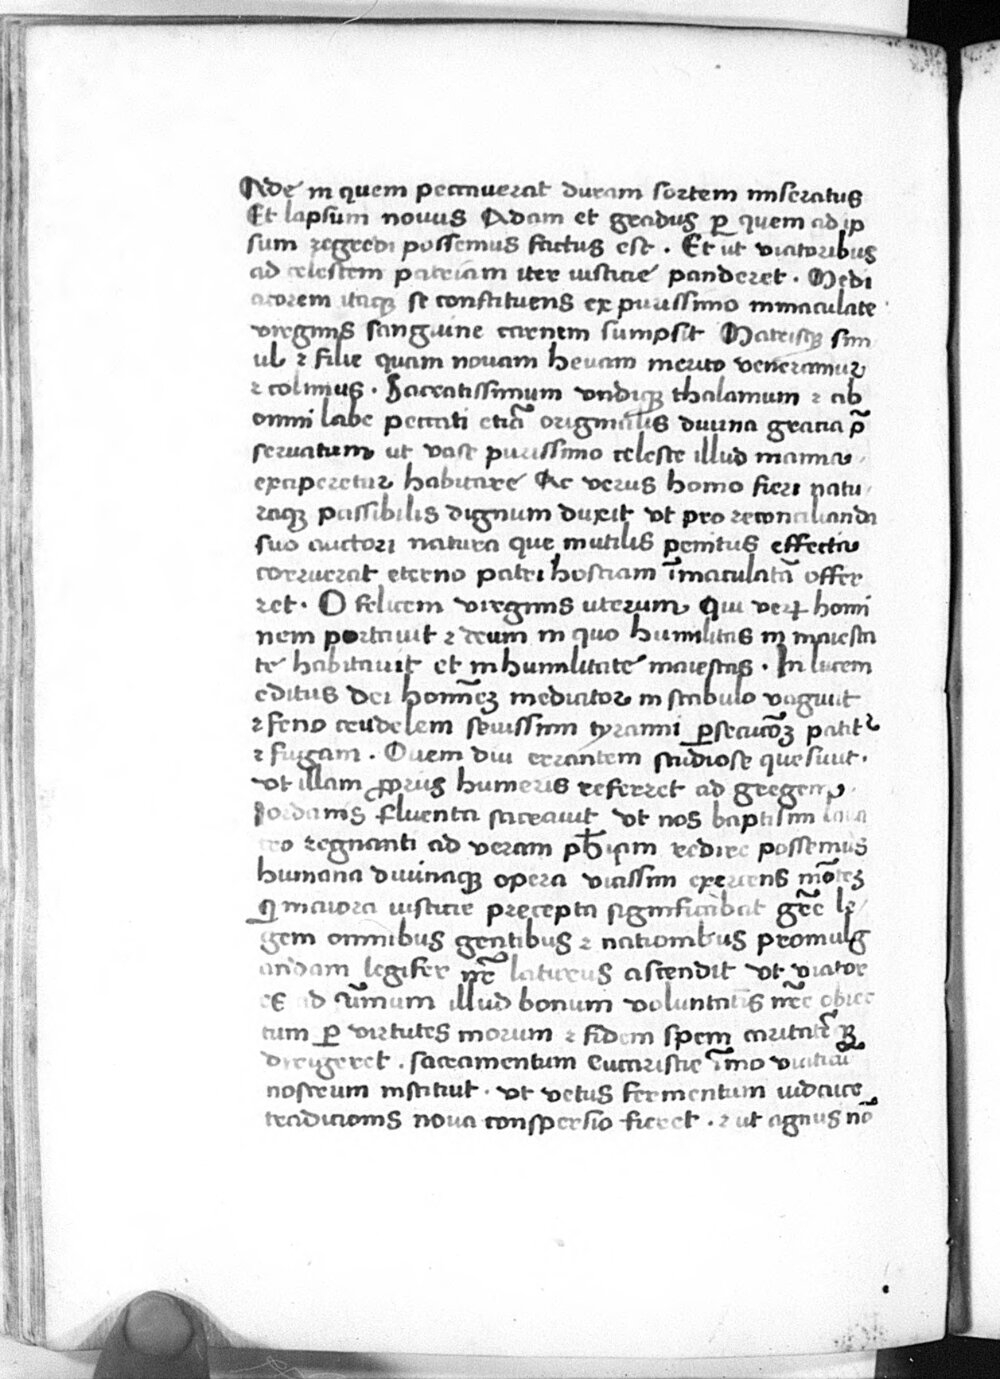 Ade in quem peccauerat duram sortem miseratus
Et lapsum nouus Adam et gradus ꝑ quem ad ip
sum regredi possemus factus est . Et ut viatoribus
ad celestem patriam iter iusticie panderet . Medi
atorem itaqꝫ se constituens ex purissimo inmaculate
virginis sanguine carnem sumpsit Matrisqꝫ sim
ul ⁊ filie quam nouam heuam merito veneramur
⁊ colimus . Sacratissimum vndiqꝫ thalamum ⁊ ab
omni labe peccati etiā originalis diuina gracia p̄
seruatum ut vase purissimo celeste illud manna
exciperetur habitare Ac verus homo fieri natu
raqꝫ passibilis dignum duxit vt pro reconcilianda
suo auctori natura que inutilis penitus effecta
corruerat eterno patri hostiam īmaculatā offer
ret . O felicem virginis uterum Qui homi
nem portauit ⁊ deum in quo humilitas in maiesta
te habitauit et in humilitate maiestas . In lucem
editus dei hominēꝫ mediator in stabulo vagiuit
⁊ feno crudelem seuissimi tyranni ꝑsecucōꝫ patit᷑
⁊ fugam . Ouem diu errantem studiose quesiuit .
vt illam ꝓprius humeris referret ad gregem .
Jordanis fluenta sacrauit vt nos baptism laua
cro regnanti ad veram redire possemus
humana diuinaqꝫ opera vicissim exercens mōteꝫ
ꝙ maiora iusticie precepta significabat gr̄e le
gem omnibus gentibus ⁊ nationibus promulg
andam legifer nr̄e laturus ascendit vt viator
es ad sūmum illud bonum voluntatis nr̄e obiec
tum ꝑ virtutes morum ⁊ fidem spem caritatēqꝫ
dirigeret . sacramentum Eucaristie īmo viaticū
nostrum instituit . vt vetus fermentum iudaice
tradicionis noua conspersio fieret . ⁊ ut agnus nō